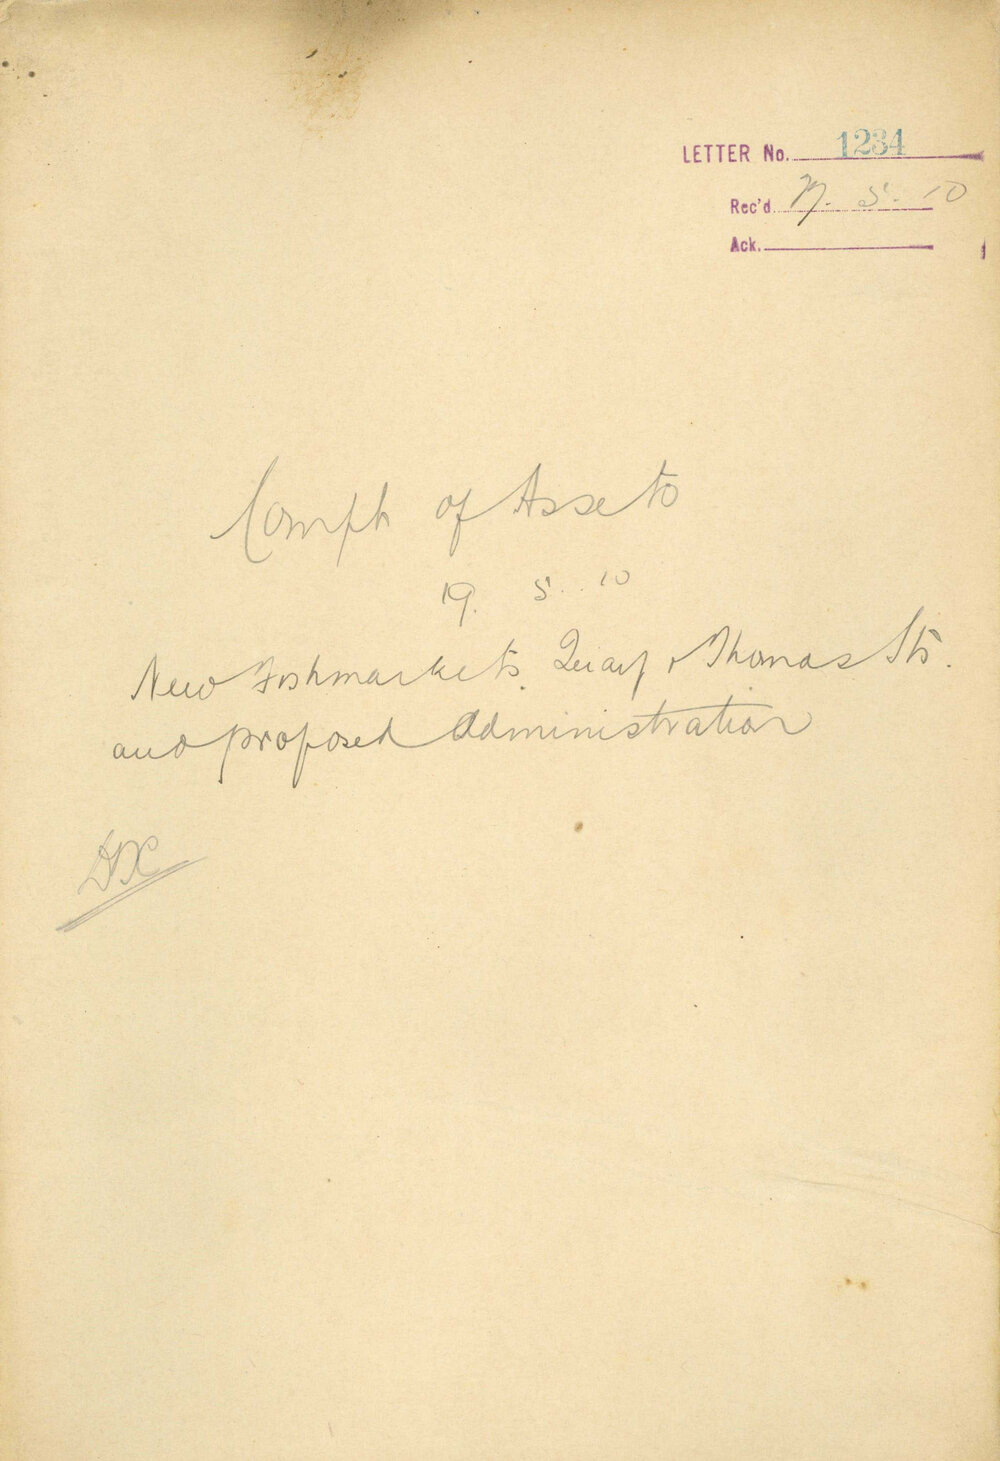 LETTER No. 1234
Rec'd 5. 10
Ack.
of Assets
19. 5. 10
New Fishmarkets, Quay & Thomas Sts.
and proposed Administration